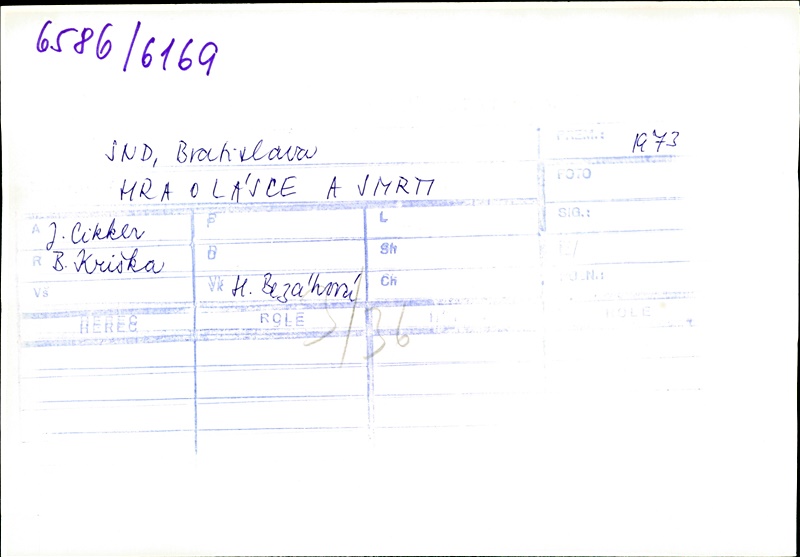 6586/6169
SND, Bratislava
PREM.: 1973
HRA O LÁSCE A SMRTI
FOTO
A J. Cikker
P
L
SIG.:
R B. Kriška
D
Sh
Vs
Vk H. Bezáková
Ch
HEREC
ROLE
ROLE
5/36